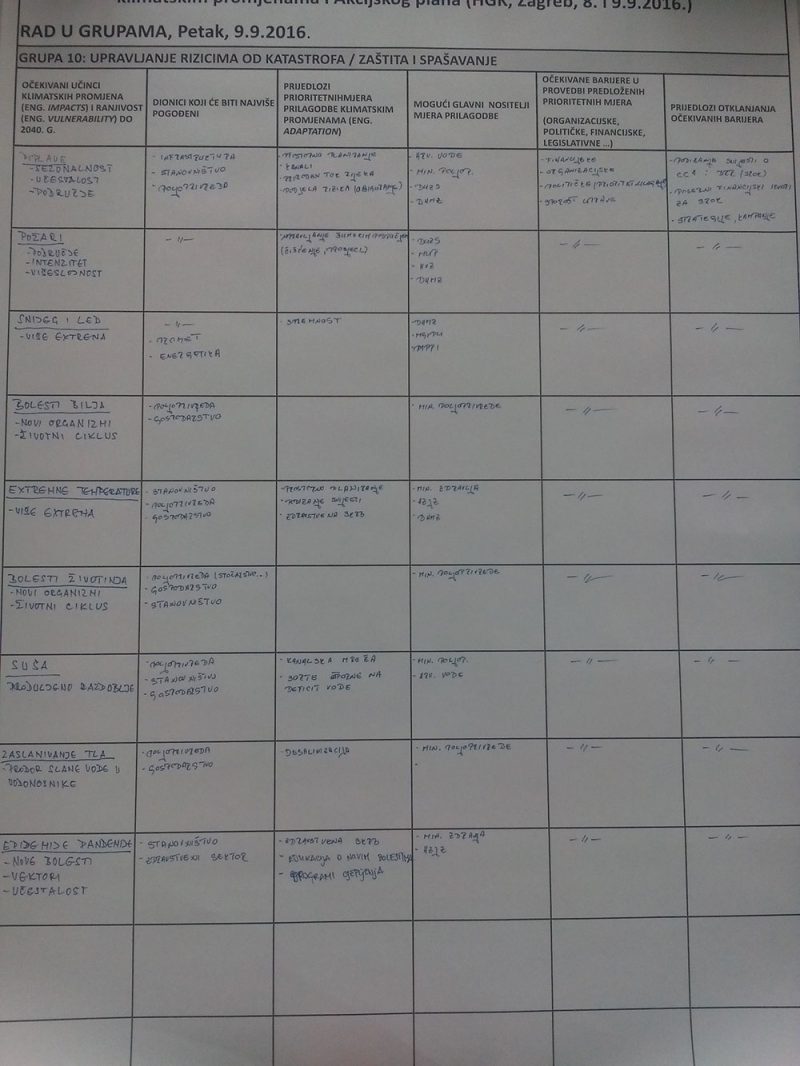 klimatskim promjenama i Akcijskog plana (HGK, Zagreb, 8. i 9.9.2016.)
RAD U GRUPAMA, Petak, 9.9.2016.
GRUPA 10: UPRAVLJANJE RIZICIMA OD KATASTROFA / ZAŠTITA I SPAŠAVANJE
OČEKIVANI UČINCI
KLIMATSKIH PROMJENA
(ENG. IMPACTS) I RANJIVOST
(ENG. VULNERABILITY) DO
2040. G.
DIONICI KOJI ĆE BITI NAJVIŠE
POGOĐENI
PRIJEDLOZI
PRIORITETNIHMJERA
PRILAGODBE KLIMATSKIM
PROMJENAMA (ENG.
ADAPTATION)
MOGUĆI GLAVNI NOSITELJI
MJERA PRILAGODBE
OČEKIVANE BARIJERE U
PROVEDBI PREDLOŽENIH
PRIORITETNIH MJERA
(ORGANIZACIJSKE,
POLITIČKE, FINANCIJSKE,
LEGISLATIVNE ...)
PRIJEDLOZI OTKLANJANJA
OČEKIVANIH BARIJERA
POPLAVE
- SEZONALNOST
- UČESTALOST
- PODRUČJE
- INFRASTRUKTURA
- STANOVNIŠTVO
- POLJOPRIVREDA
- PROSTORNO PLANIRANJE
- KANALI
- PRIRODAN TOK RIJEKA
- PODJELA RIZIKA
- HRV. VODE
- MIN. POLJOP.
- DUZS
- DHMZ
- FINANCIJSKE
- ORGANIZACIJSKE
- POLITIČKA
- SPOROST UPRAVE
- PODIZANJE SVIJESTI O
CCA
- POSEBNI FINANCIJSKI
ZA
- STRATEGIJE, KAMPANJE
POŽARI
- PODRUČJE
- INTENZITET
- VIŠESLOJNOST
- // -
UPRAVLJANJE
(ČIŠĆENJE, PROSJECI)
- DUZS
- MUP
- HVZ
- DHMZ
- // -
- // -
SNIJEG I LED
- VIŠE EXTREMA
- // -
- PROMET
- ENERGETIKA
- SPREMNOST
- DHMZ
- MGIPU
- MPPI
- // -
- // -
BOLESTI BILJA
- NOVI ORGANIZMI
- ŽIVOTNI CIKLUS
- POLJOPRIVREDA
- GOSPODARSTVO
- MIN. POLJOPRIVREDE
- // -
- // -
EXTREMNE TEMPERATURE
- VIŠE EXTREMA
- STANOVNIŠTVO
- POLJOPRIVREDA
- GOSPODARSTVO
- PROSTORNO PLANIRANJE
- PODIZANJE SVIJESTI
- ZDRAVSTVENA SKRB
- MIN. ZDRAVLJA
- HZJZ
- DHMZ
- // -
- // -
BOLESTI ŽIVOTINJA
- NOVI ORGANIZMI
- ŽIVOTNI CIKLUS
- POLJOPRIVREDA (STOČARSTVO..)
- GOSPODARSTVO
- STANOVNIŠTVO
- MIN. POLJOPRIVREDE
- // -
- // -
SUŠA
PRODULJENO RAZDOBLJE
- POLJOPRIVREDA
- STANOVNIŠTVO
- GOSPODARSTVO
- KANALSKA MREŽA
- SORTE OTPORNE NA
DEFICIT VODE
- MIN. POLJOP.
- HRV. VODE
- // -
- // -
ZASLANJIVANJE TLA
- PRODOR SLANE VODE U
VODONOSNIKE
- POLJOPRIVREDA
- GOSPODARSTVO
- DESALINIZACIJA
- MIN. POLJOPRIVREDE
-
- // -
- // -
EPIDEMIJE PANDEMIJE
- NOVE BOLESTI
- VEKTORI
- UČESTALOST
- STANOVNIŠTVO
- ZDRAVSTVENI SEKTOR
- ZDRAVSTVENA SKRB
- EDUKACIJA O NOVIM BOLESTIMA
- PROGRAMI CIJEPLJENJA
- MIN. ZDRAVLJA
- HZJZ
- // -
- // -